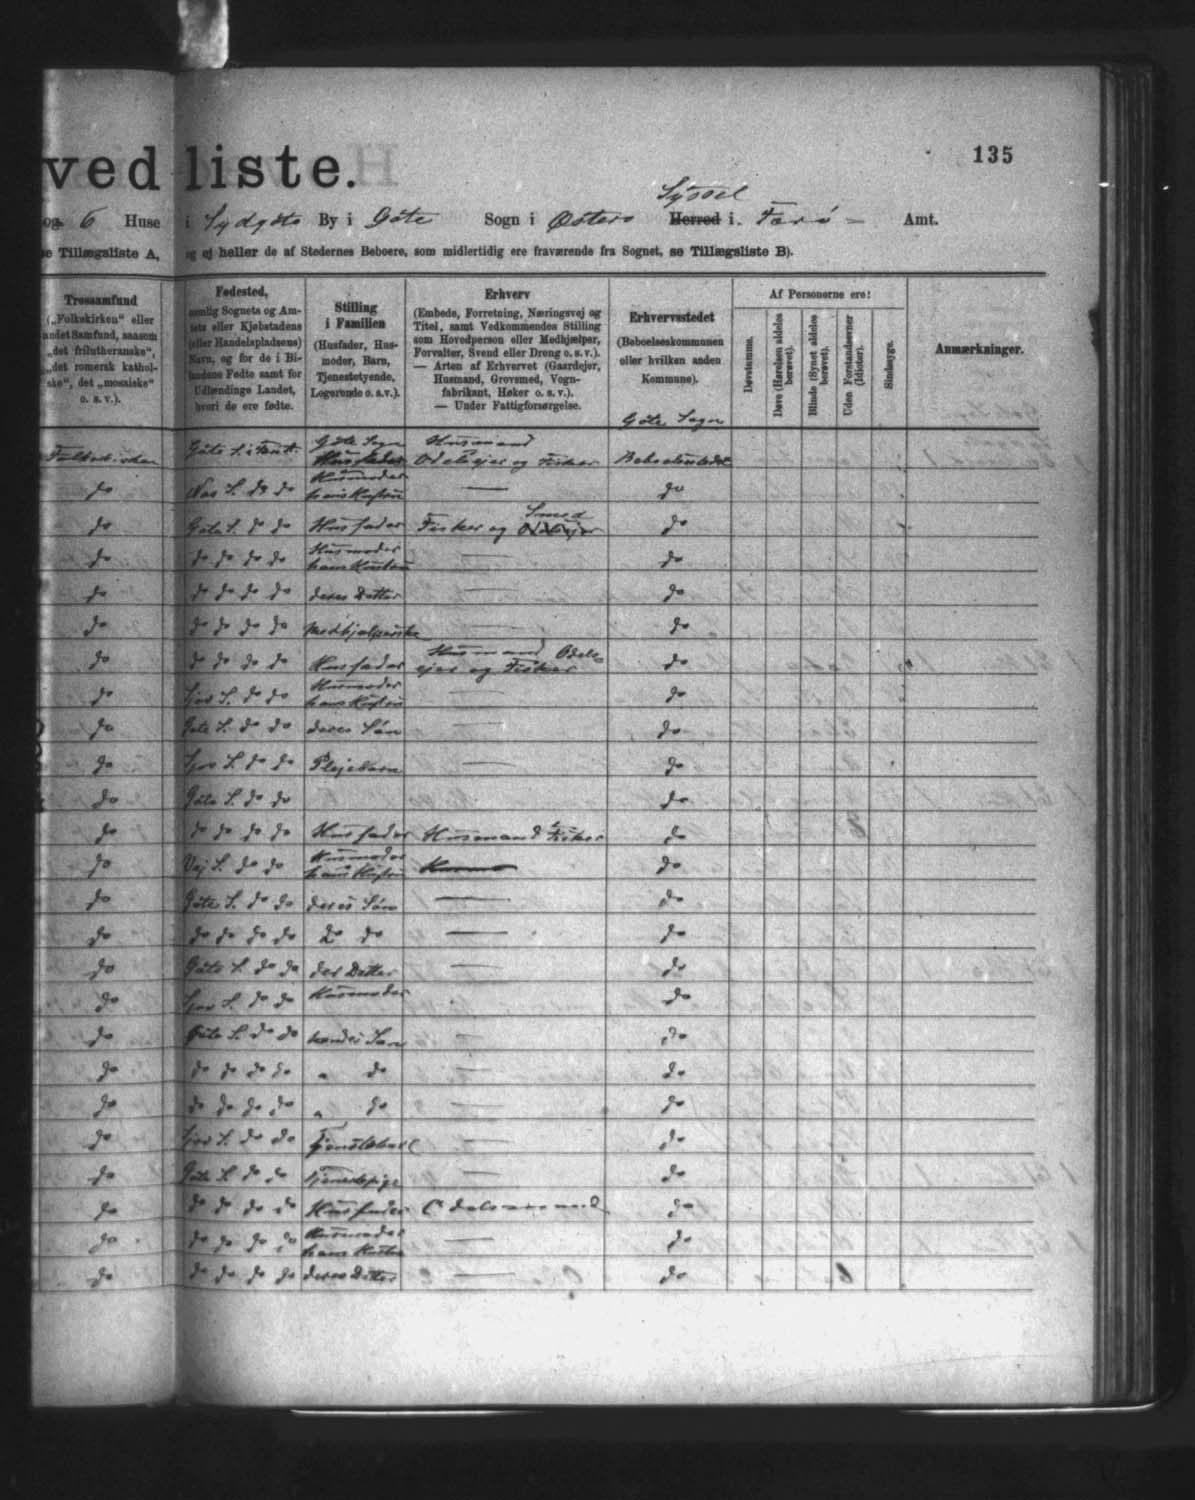 ved liste.
135
og 6 Huse i Sydgöte By i Göte Sogn i Östers Syssel Herred i. Færö Amt.
se Tillægsliste A, og ej heller de af Stedernes Beboere, som midlertidig ere fraværende fra Sognet, se Tillægsliste B).
Trossamfund
(„Folkekirken“ eller
andet Samfund, saasom
„det frilutheranske“,
„det romersk kathol-
ske“, det „mosaiske“
o. s. v.).
Fødested,
nemlig Sognets og Am-
tets eller Kjøbstadens
(eller Handelspladsens)
Navn, og for de i Bi-
landene Fødte samt for
Udlændinge Landet,
hvori de ere fødte.
Stilling
i Familien
(Husfader, Hus-
moder, Barn,
Tjenestetyende,
Logerende o. s. v.).
Erhverv
(Embede, Forretning, Næringsvej og
Titel, samt Vedkommendes Stilling
som Hovedperson eller Medhjælper,
Forvalter, Svend eller Dreng o. s. v.).
— Arten af Erhvervet (Gaardejer,
Husmand, Grovsmed, Vogn-
fabrikant, Høker o. s. v.).
— Under Fattigforsørgelse.
Erhvervsstedet
(Beboelseskommunen
eller hvilken anden
Kommune).
Göte Sogn
Af Personerne ere:
Døvstumme.
Døve (Hørelsen aldeles
berøvet).
Blinde (Synet aldeles
berøvet).
Uden Forstandsevner
(Idioter).
Sindssyge.
Anmærkninger.
Göte S. i Husfader Husmand Odelsejer og Fisker
do S. do do Husmoder hans Kustru — do
do Göte S. do do Husfader Fisker og Smed do
do do do do do Husmoder hans Kustru — do
do do do do do deres Datter — do
do do do do do — do
do do do do do Husfader Husmand Odelsejer og Fisker do
do S. do do Husmoder hans Kustru — do
do Göte S. do do deres Sön — do
do S. do do Plejebarn — do
do Göte S. do do do
do do do do do Husfader Husmand Fisker do
do S. do do Husmoder hans Kustru do
do Göte S. do do deres Sön — do
do do do do do do do — do
do Göte S. do do Datter — do
do S. do do Husmoder do
do Göte S. do do hendes Sön — do
do do do do do " do — do
do do do do do " do — do
do S. do do — do
do Göte S. do do Tjenestepige — do
do do do do do Husfader Odelsmand do
do do do do do Husmoder hans Kustru — do
do do do do do deres Datter — do